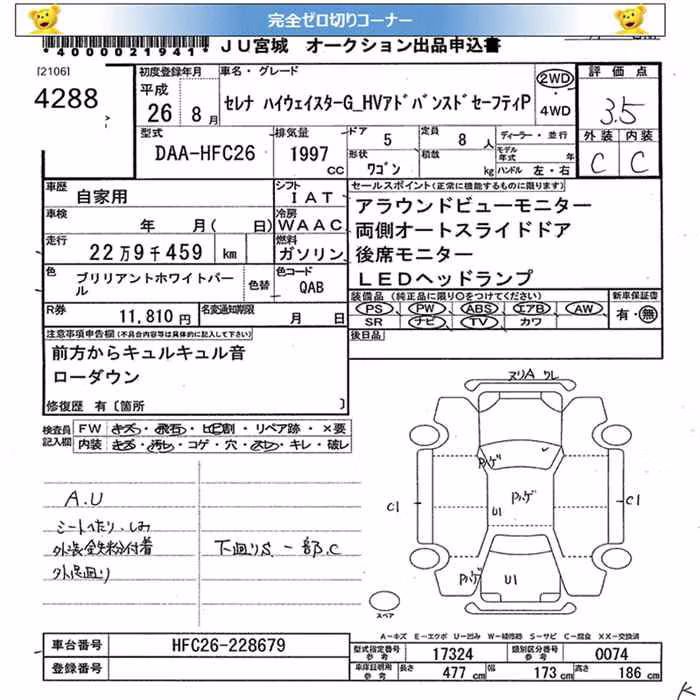 完全ゼロ切りコーナー
*4000021941*
JU宮城 オークション出品申込書
[2106]
4288
初度登録年月
平成
26年8月
車名・グレード
セレナ ハイウェイスターG_HVアドバンスドセーフティP
2WD
4WD
評価点
3.5
外装 内装
C C
型式
DAA-HFC26
排気量
1997
CC
ドア 5
定員 8人
形状
ワゴン
積載
kg
ディーラー・並行
モデル年式 年
ハンドル 左・右
車歴 自家用
シフト
IAT
車検 年 月( 日)
冷房
WAAC
走行
22万9千459 km
燃料
ガソリン
色
ブリリアントホワイトパール
色替
色コード
QAB
R券
11,810円
名変通知期限
月 日
セールスポイント(正常に機能するものに限ります)
アラウンドビューモニター
両側オートスライドドア
後席モニター
LEDヘッドランプ
装備品(純正品に限り○をつけてください)
PS PW ABS エアB AW
SR ナビ TV カワ
新車保証書
有・無
後日品
注意事項申告欄(不具合内容等は具体的に記入して下さい)
前方からキュルキュル音
ローダウン
修復歴 有〔箇所 〕
検査員記入欄
FW キズ・飛石・ヒビ割・リペア跡・×要
内装 キズ・汚レ・コゲ・穴・スレ・キレ・破レ
A.U
シートへたり、しみ
外装鉄粉付着
外足廻り
下廻りS 一部C
ヌリA ワレ
Pハゲ
C1
Pハゲ
U1
C1
Pハゲ
U1
スペア
A-キズ E-エクボ U-凹み W-補修跡 S-サビ C-腐食 XX-交換済
車台番号
HFC26-228679
登録番号
型式指定番号
参考
17324
類別区分番号
参考
0074
車庫証明用
参考
長さ 477 cm
幅 173 cm
高さ 186 cm
K